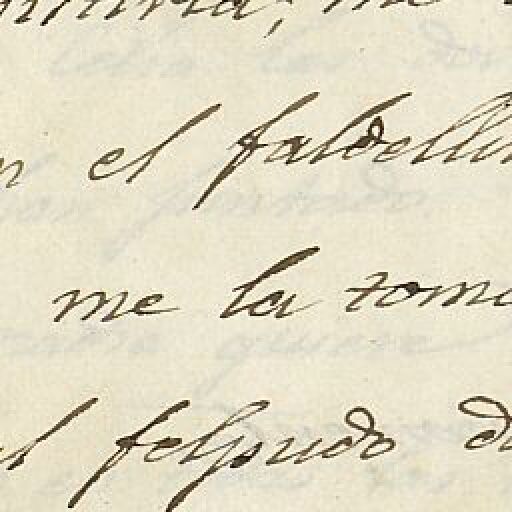 me
el faldelli
me la toma
al felpudo d